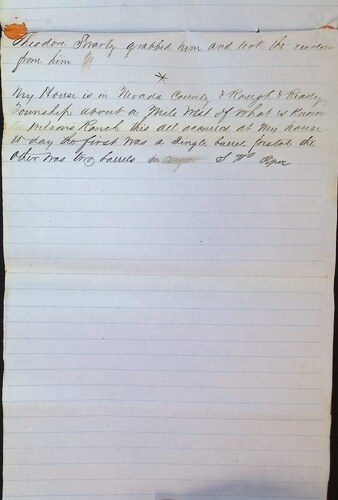 Theodore grabbed him and took the revolver
from him
My House is in Nevada County & Rough & Ready
Township about a Mile West of What is Known
Ranch this all occurred at My house
to day the first was a single barrel pistol the
other was two barrels S W Piper